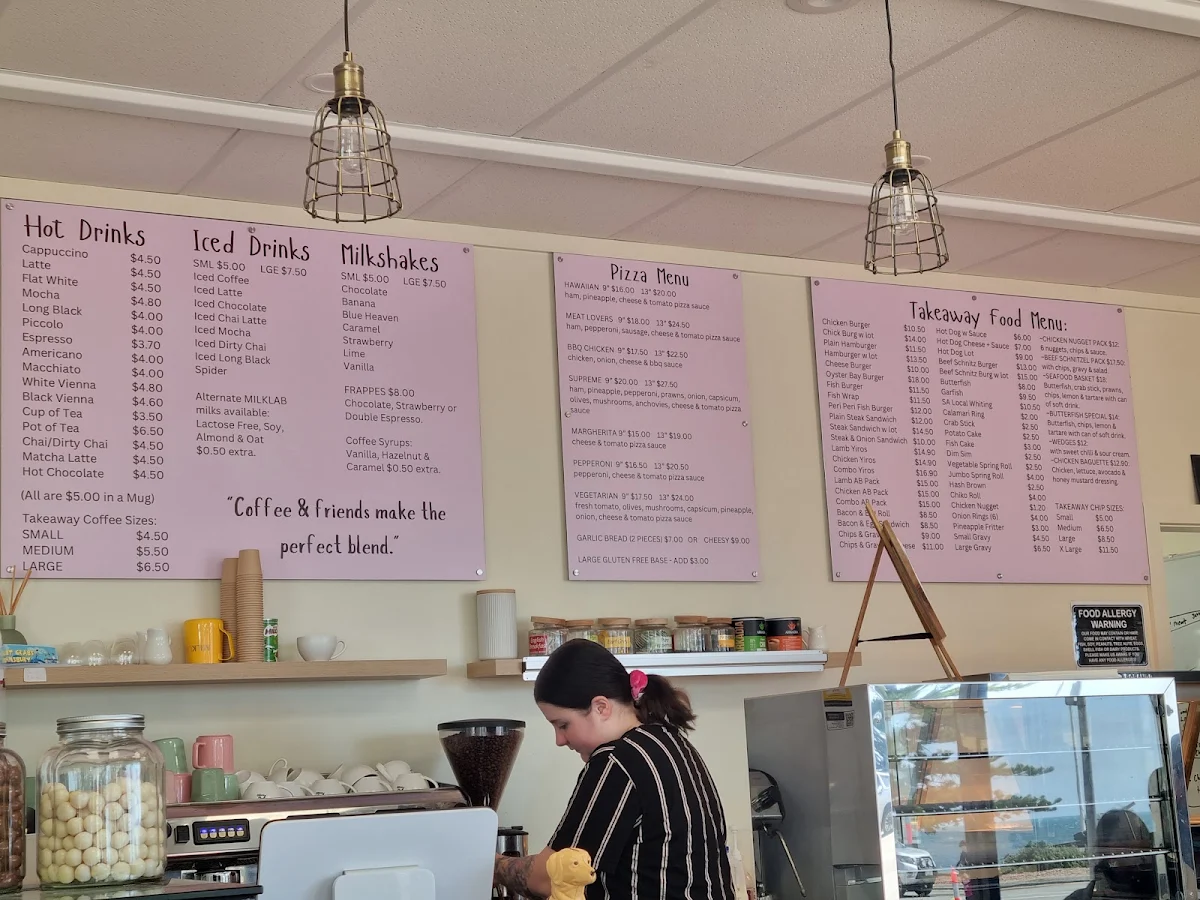 Hot Drinks
Cappuccino $4.50
Latte $4.50
Flat White $4.50
Mocha $4.80
Long Black $4.00
Piccolo $4.00
Espresso $3.70
Americano $4.00
Macchiato $4.00
White Vienna $4.80
Black Vienna $4.60
Cup of Tea $3.50
Pot of Tea $6.50
Chai/Dirty Chai $4.50
Matcha Latte $4.50
Hot Chocolate $4.50
(All are $5.00 in a Mug)
Takeaway Coffee Sizes:
SMALL $4.50
MEDIUM $5.50
LARGE $6.50
Iced Drinks
SML $5.00 LGE $7.50
Iced Coffee
Iced Latte
Iced Chocolate
Iced Chai Latte
Iced Mocha
Iced Dirty Chai
Iced Long Black
Spider
Alternate MILKLAB
milks available:
Lactose Free, Soy,
Almond & Oat
$0.50 extra.
Milkshakes
SML $5.00 LGE $7.50
Chocolate
Banana
Blue Heaven
Caramel
Strawberry
Lime
Vanilla
FRAPPES $8.00
Chocolate, Strawberry or
Double Espresso.
Coffee Syrups:
Vanilla, Hazelnut &
Caramel $0.50 extra.
"Coffee & friends make the
perfect blend."
Pizza Menu
HAWAIIAN 9" $16.00 13" $20.00
ham, pineapple, cheese & tomato pizza sauce
MEAT LOVERS 9" $18.00 13" $24.50
ham, pepperoni, sausage, cheese & tomato pizza sauce
BBQ CHICKEN 9" $17.50 13" $22.50
chicken, onion, cheese & bbq sauce
SUPREME 9" $20.00 13" $27.50
ham, pineapple, pepperoni, prawns, onion, capsicum,
olives, mushrooms, anchovies, cheese & tomato pizza
sauce
MARGHERITA 9" $15.00 13" $19.00
cheese & tomato pizza sauce
PEPPERONI 9" $16.50 13" $20.50
pepperoni, cheese & tomato pizza sauce
VEGETARIAN 9" $17.50 13" $24.00
fresh tomato, olives, mushrooms, capsicum, pineapple,
onion, cheese & tomato pizza sauce
GARLIC BREAD (2 PIECES) $7.00 OR CHEESY $9.00
LARGE GLUTEN FREE BASE - ADD $3.00
Takeaway Food Menu:
Chicken Burger $10.50
Chick Burg w lot $14.00
Plain Hamburger $11.50
Hamburger w lot $13.50
Cheese Burger $10.00
Oyster Bay Burger $18.00
Fish Burger $11.50
Fish Wrap $11.50
Peri Peri Fish Burger $12.00
Plain Steak Sandwich $12.00
Steak Sandwich w lot $14.50
Steak & Onion Sandwich $10.00
Lamb Yiros $14.90
Chicken Yiros $14.90
Combo Yiros $16.90
Lamb AB Pack $15.00
Chicken AB Pack $15.00
Combo AB Pack $15.00
Bacon & Roll $8.50
Bacon & Sandwich $8.50
Chips & $9.00
Chips & $11.00
Hot Dog w Sauce $6.00
Hot Dog Cheese + Sauce $7.00
Hot Dog Lot $9.00
Beef Schnitz Burger $13.00
Beef Schnitz Burg w lot $15.00
Butterfish $8.00
Garfish $9.50
SA Local Whiting $10.50
Calamari Ring $2.00
Crab Stick $2.50
Potato Cake $2.50
Fish Cake $3.00
Dim Sim $2.50
Vegetable Spring Roll $2.50
Jumbo Spring Roll $4.00
Hash Brown $2.50
Chiko Roll $4.00
Chicken Nugget $1.20
Onion Rings (6) $4.00
Pineapple Fritter $3.00
Small Gravy $4.50
Large Gravy $6.50
~CHICKEN NUGGET PACK $12:
6 nuggets, chips & sauce.
~BEEF SCHNITZEL PACK $17.50:
with chips, gravy & salad
~SEAFOOD BASKET $18:
Butterfish, crab stick, prawns,
chips, lemon & tartare with can
of soft drink.
~BUTTERFISH SPECIAL $14:
Butterfish, chips, lemon &
tartare with can of soft drink.
~WEDGES $12:
with sweet chilli & sour cream.
~CHICKEN BAGUETTE $12.90:
Chicken, lettuce, avocado &
honey mustard dressing.
TAKEAWAY CHIP SIZES:
Small $5.00
Medium $6.50
Large $8.50
X Large $11.50
FOOD ALLERGY
WARNING
OUR FOOD MAY CONTAIN OR HAVE